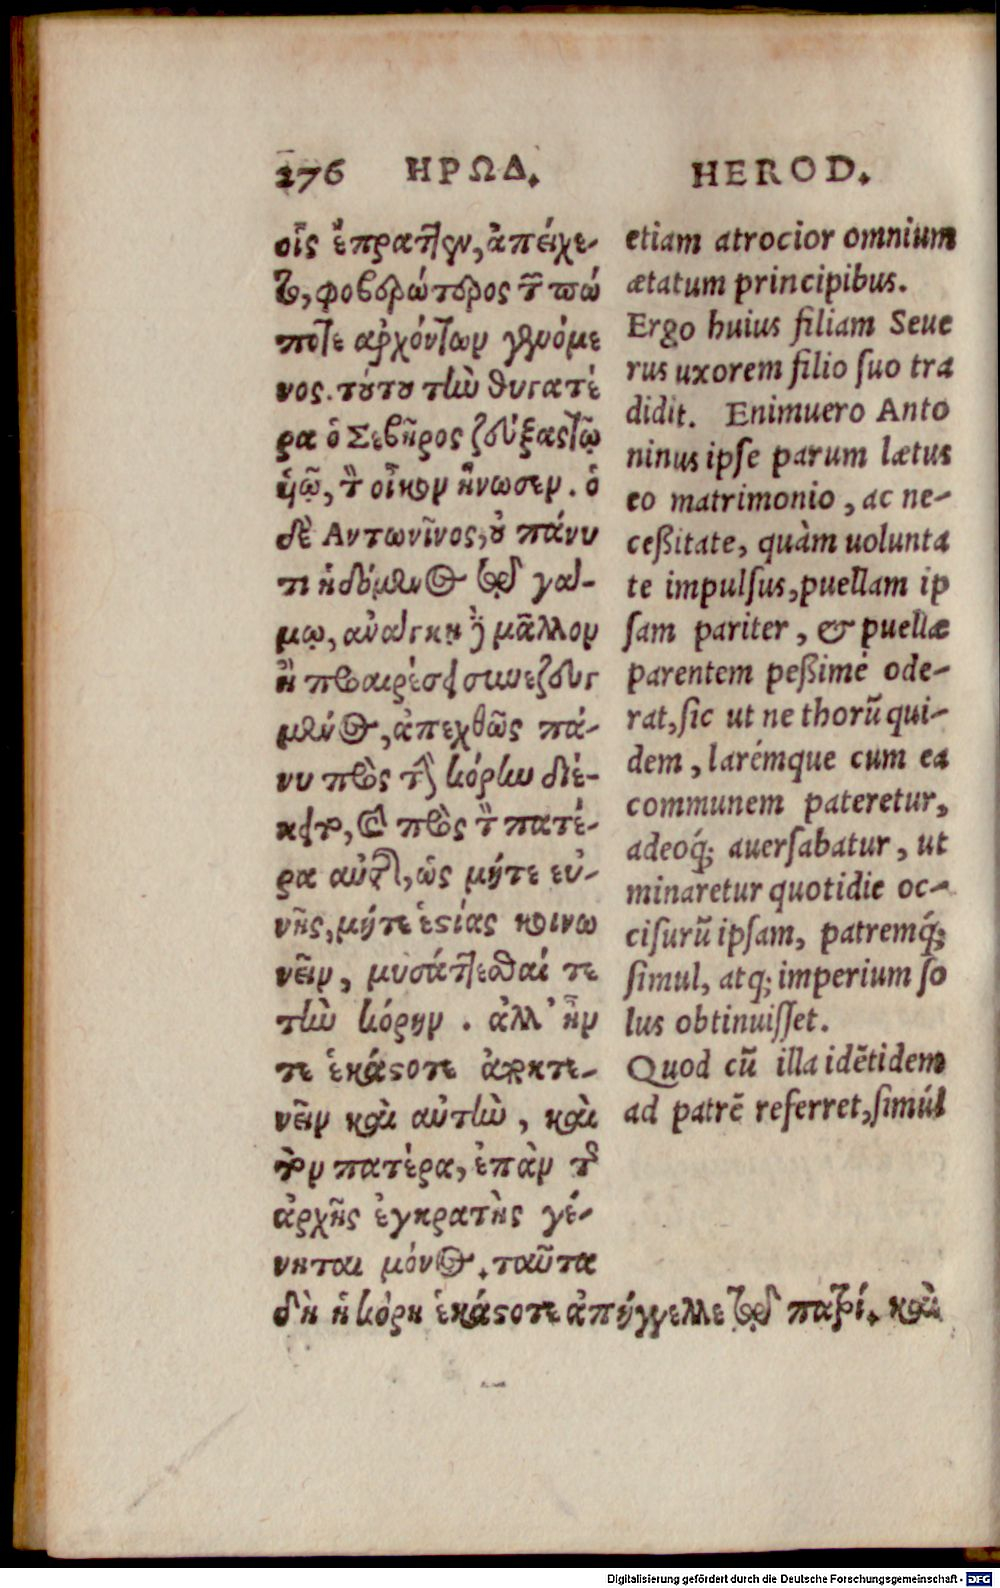 276 ΗΡΩΔ.
οἷς ἔπραττεν, ἀπέιχε-
το, φοβερώτερος τῶν πώ
ποτε ἀρχόντων γενόμε
νος. τούτου τὴν θυγατέ
ρα ὁ Σεβῆρος ζεύξας τῷ
ὑῷ, τὸν οἶκον ἥνωσεν. ὁ
δὲ Αντωνῖνος, οὐ πάνυ
τι ἡδόμενος τῷ γά-
μῳ, ἀνάγκῃ δὲ μᾶλλον
ἢ προαιρέσει συνεζευγ
μένος, ἀπεχθῶς πά-
νυ πρὸς τὴν κόρην διέ-
κειτο, καὶ πρὸς τὸν πατέ-
ρα αὐτῆς, ὡς μήτε εὐ-
νῆς, μήτε ἑστίας κοινω
νεῖν, μυσάττεσθαί τε
τὴν κόρην. ἀλλ' ἦν
τε ἑκάστοτε ἀποκτε-
νεῖν καὶ αὐτὴν, καὶ
τὸν πατέρα, ἐπὰν τῆς
ἀρχῆς ἐγκρατὴς γέ-
νηται μόνος. ταῦτα
δὴ ἡ κόρη ἑκάστοτε ἀπήγγελλε τῷ πατρί. καὶ
HEROD.
etiam atrocior omnium
ætatum principibus.
Ergo huius filiam Seue
rus uxorem filio ſuo tra
didit. Enimuero Anto
ninus ipſe parum lætus
eo matrimonio, ac ne-
ceßitate, quàm uolunta
te impulſus, puellam ip
ſam pariter, & puellæ
parentem peßimè ode-
rat, ſic ut ne thorũ qui-
dem, larémque cum ea
communem pateretur,
adeoq́; auerſabatur, ut
minaretur quotidie oc-
ciſurũ ipſam, patremq́;
ſimul, atq; imperium ſo
lus obtinuiſſet.
Quod cũ illa idẽtidem
ad patrẽ referret, ſimúl
Digitalisierung gefördert durch die Deutsche Forschungsgemeinschaft - DFG